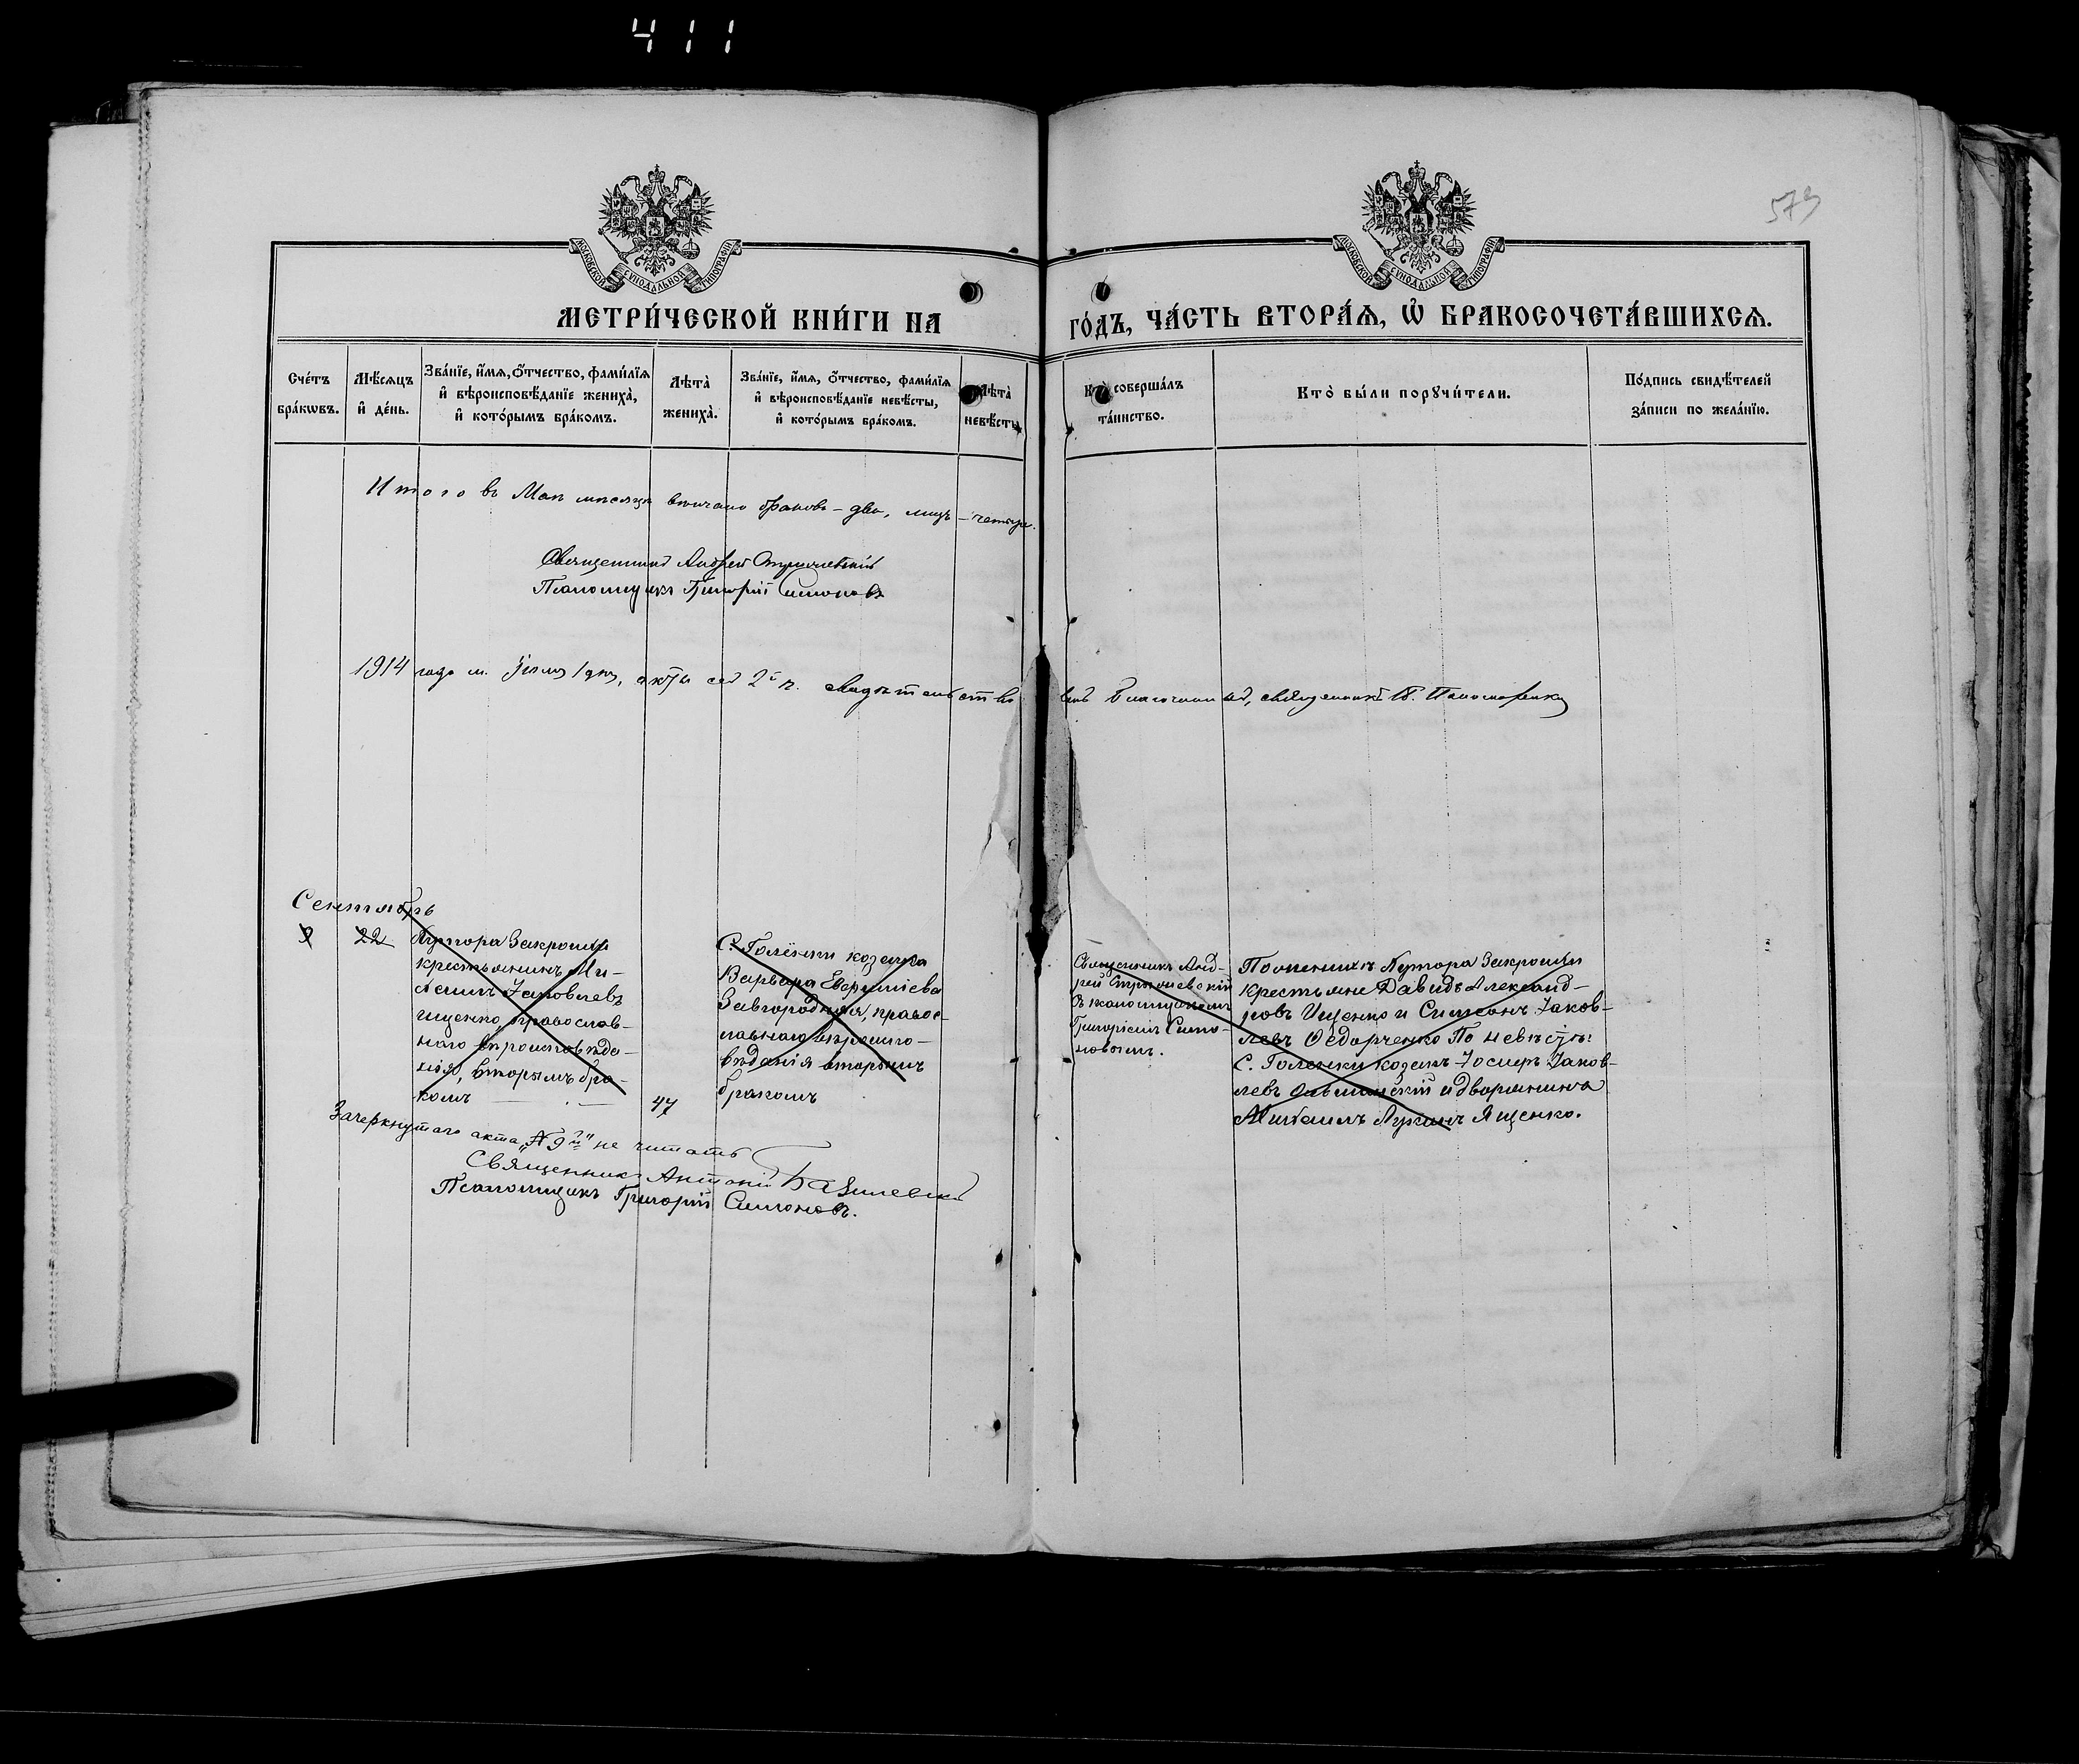 411
579
МОСКОВСКОЙ СѴНОДАЛЬНОЙ ТИПОГРАФІИ
МОСКОВСКОЙ СѴНОДАЛЬНОЙ ТИПОГРАФІИ
МЕТРИ́ЧЕСКОЙ КНИ́ГИ НА ГО́ДЪ, ЧА́СТЬ ВТОРА́Ѧ, Ѡ҆ БРАКОСОЧЕТА́ВШИХСѦ.
Сче́тъ бра́кѡвъ.
Мѣ́сѧцъ и҆ де́нь.
Зва́нїе, и҆́мѧ, ѻ҆́тчество, фами́лїѧ
и҆ вѣроисповѣ́данїе жениха̀,
и҆ кото́рымъ бра́комъ.
Лѣта̀ жениха̀.
Зва́нїе, и҆́мѧ, ѻ҆́тчество, фами́лїѧ
и҆ вѣроисповѣ́данїе невѣ́сты,
и҆ кото́рымъ бра́комъ.
Лѣта̀ невѣ́сты
Кто̀ соверша́лъ та́инство.
Кто̀ бы́ли порꙋчи́тели.
По́дпись свидѣ́телей
за́писи по жела́нїю.
Итого въ Маѣ мѣсяцѣ вѣнчано браковъ - два, лицъ - четыре.
Священникъ Андрей
Псаломщикъ Григорій Симоновъ
1914 года м. Іюля 1 дня, акты сей 2й ч. свидѣтельствовалъ Благочинный, священникъ П. Пономаренко
Сентябрь
9
22
Хутора Закроихи
крестьянинъ Ми-
хаилъ Іаковлевъ
Ищенко, православ-
наго вѣроисповѣда-
нія, вторымъ бра-
комъ
47
С. Голенки козачка
Варвара Евфиміева
Завгородняя, правос-
лавнаго вѣроиспо-
вѣданія вторымъ
бракомъ
Священникъ Анд-
рей
съ псаломщикомъ
Григоріемъ Симо-
новымъ.
По женихѣ Хутора Закроихи
крестьяне Давидъ Александ-
ровъ Ищенко и Симеонъ Іаков-
левъ Ѳедорченко По невѣстѣ:
С. Голенки козакъ Іосифъ Іаков-
левъ и дворянинъ
Михаилъ Лукинъ Ященко.
Зачеркнутаго акта „№ 9й" не читать
Священникъ Антоній Базилевскій
Псаломщикъ Григорій Симоновъ.